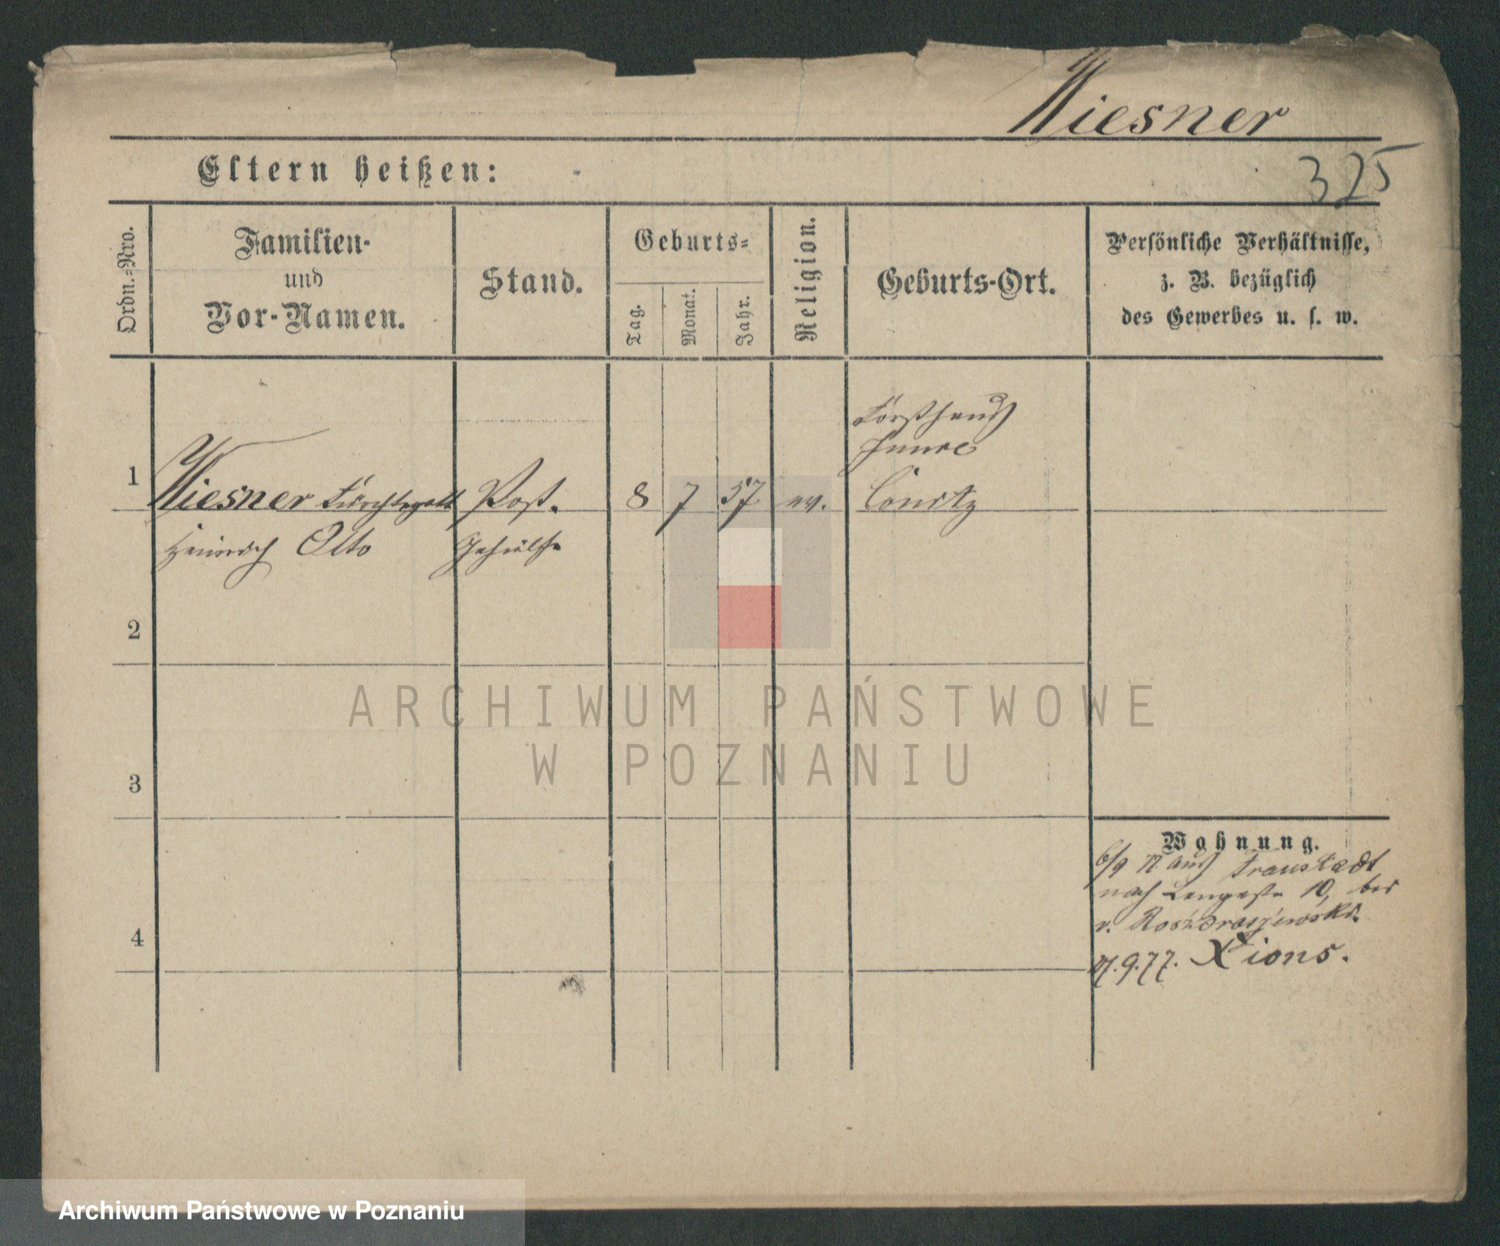 Wiesner
325
Eltern heißen:
Ordn.-Nro.
Familien-
und
Vor-Namen.
Stand.
Geburts-
Tag.
Monat.
Jahr.
Religion.
Geburts-Ort.
Persönliche Verhältnisse,
z. B. bezüglich
des Gewerbes u. s. w.
Forsthaus
1
Wiesner Fürchtegott
Post-
8
7
57
ev.
Conitz
Heinrich Otto
Gehülfe
2
3
4
Wohnung.
6/9 77 aus Fraustadt
nach Langestr. 10, bei
v. Rozdrazewski.
9.77. Xions.
ARCHIWUM PAŃSTWOWE
W POZNANIU
Archiwum Państwowe w Poznaniu